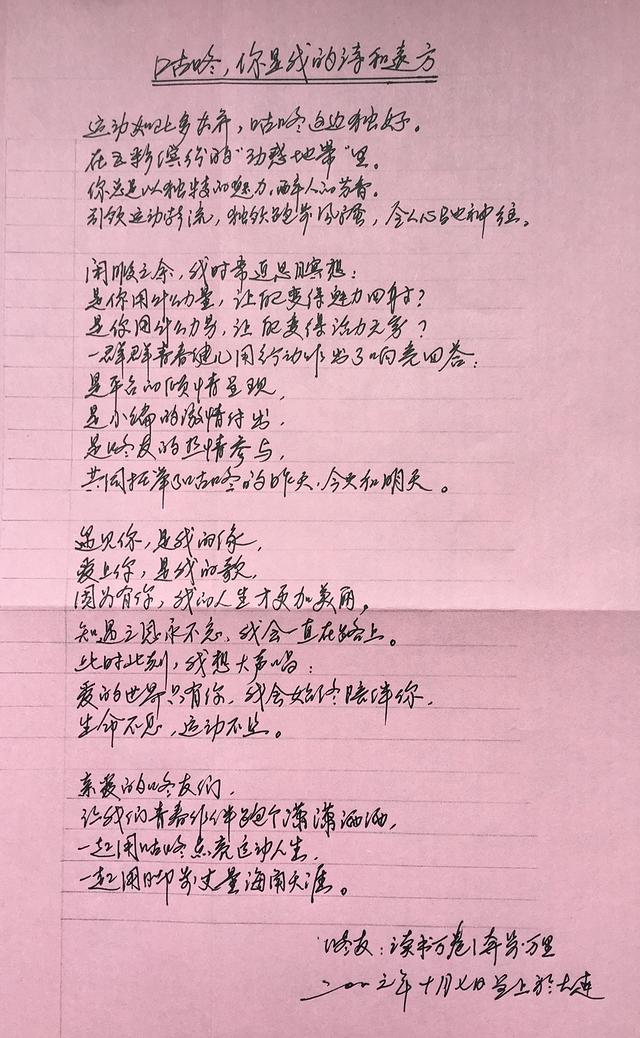 咕咚，你是我的诗和远方
运动如此多娇，咕咚这边独好。
在五彩缤纷的“动感地带”里。
你总是以独特的魅力，醉人的芳香。
引领运动新流，独领跑步风骚，令人心驰神往。
闲暇之余，我时常遐思冥想：
是你用什么力量，让配变得魅力四射？
是你用什么力量，让配变得活力无穷？
一群群青春健儿用行动作出了响亮回答：
是平台的倾情呈现，
是小编的激情付出，
是咚友的热情参与，
共同托举了咕咚的昨天、今天和明天。
遇见你，是我的缘，
爱上你，是我的歌，
因为有你，我的人生才更加美丽。
知遇之恩永不忘，我会一直在路上。
此时此刻，我想大声唱：
爱的世界只有你，我会始终陪伴你，
生命不息，运动不止。
亲爱的咚友们，
让我们青春作伴跑个潇潇洒洒，
一起用咕咚点亮运动人生，
一起用脚步丈量海角天涯。
咚友：读书万卷 奔步万里
十月七日呈上於大连